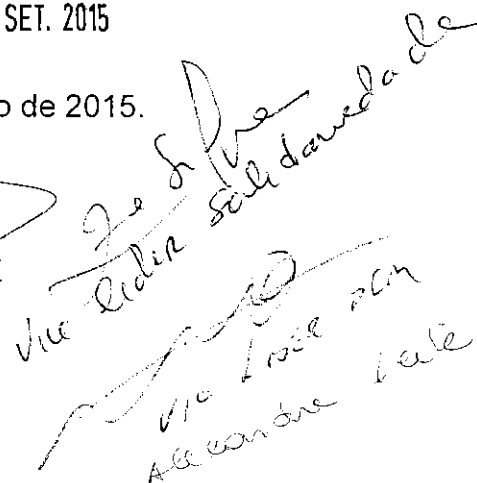 SET. 2015
o de 2015.
Ze Silva
Vice Lider Solidariedade
Vice Lider DEM
Alexandre Leite